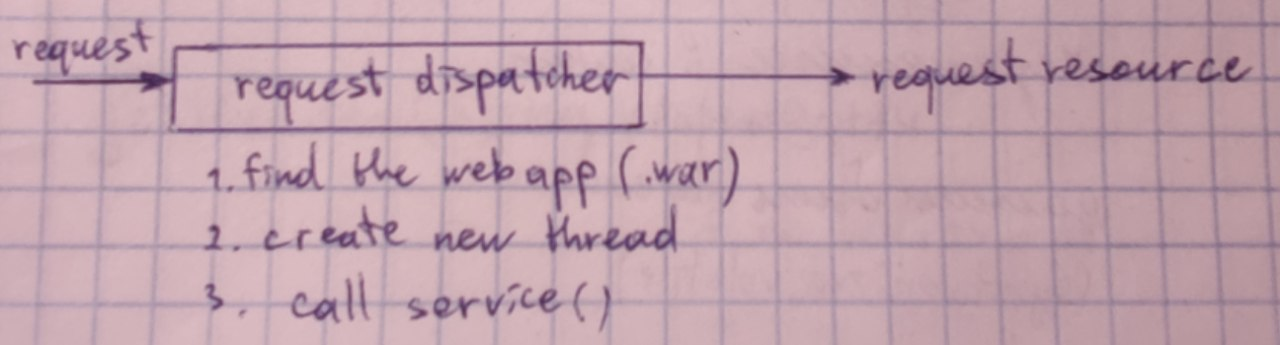 request
request dispatcher
request resource
1. find the web app (.war)
2. create new thread
3. call service()